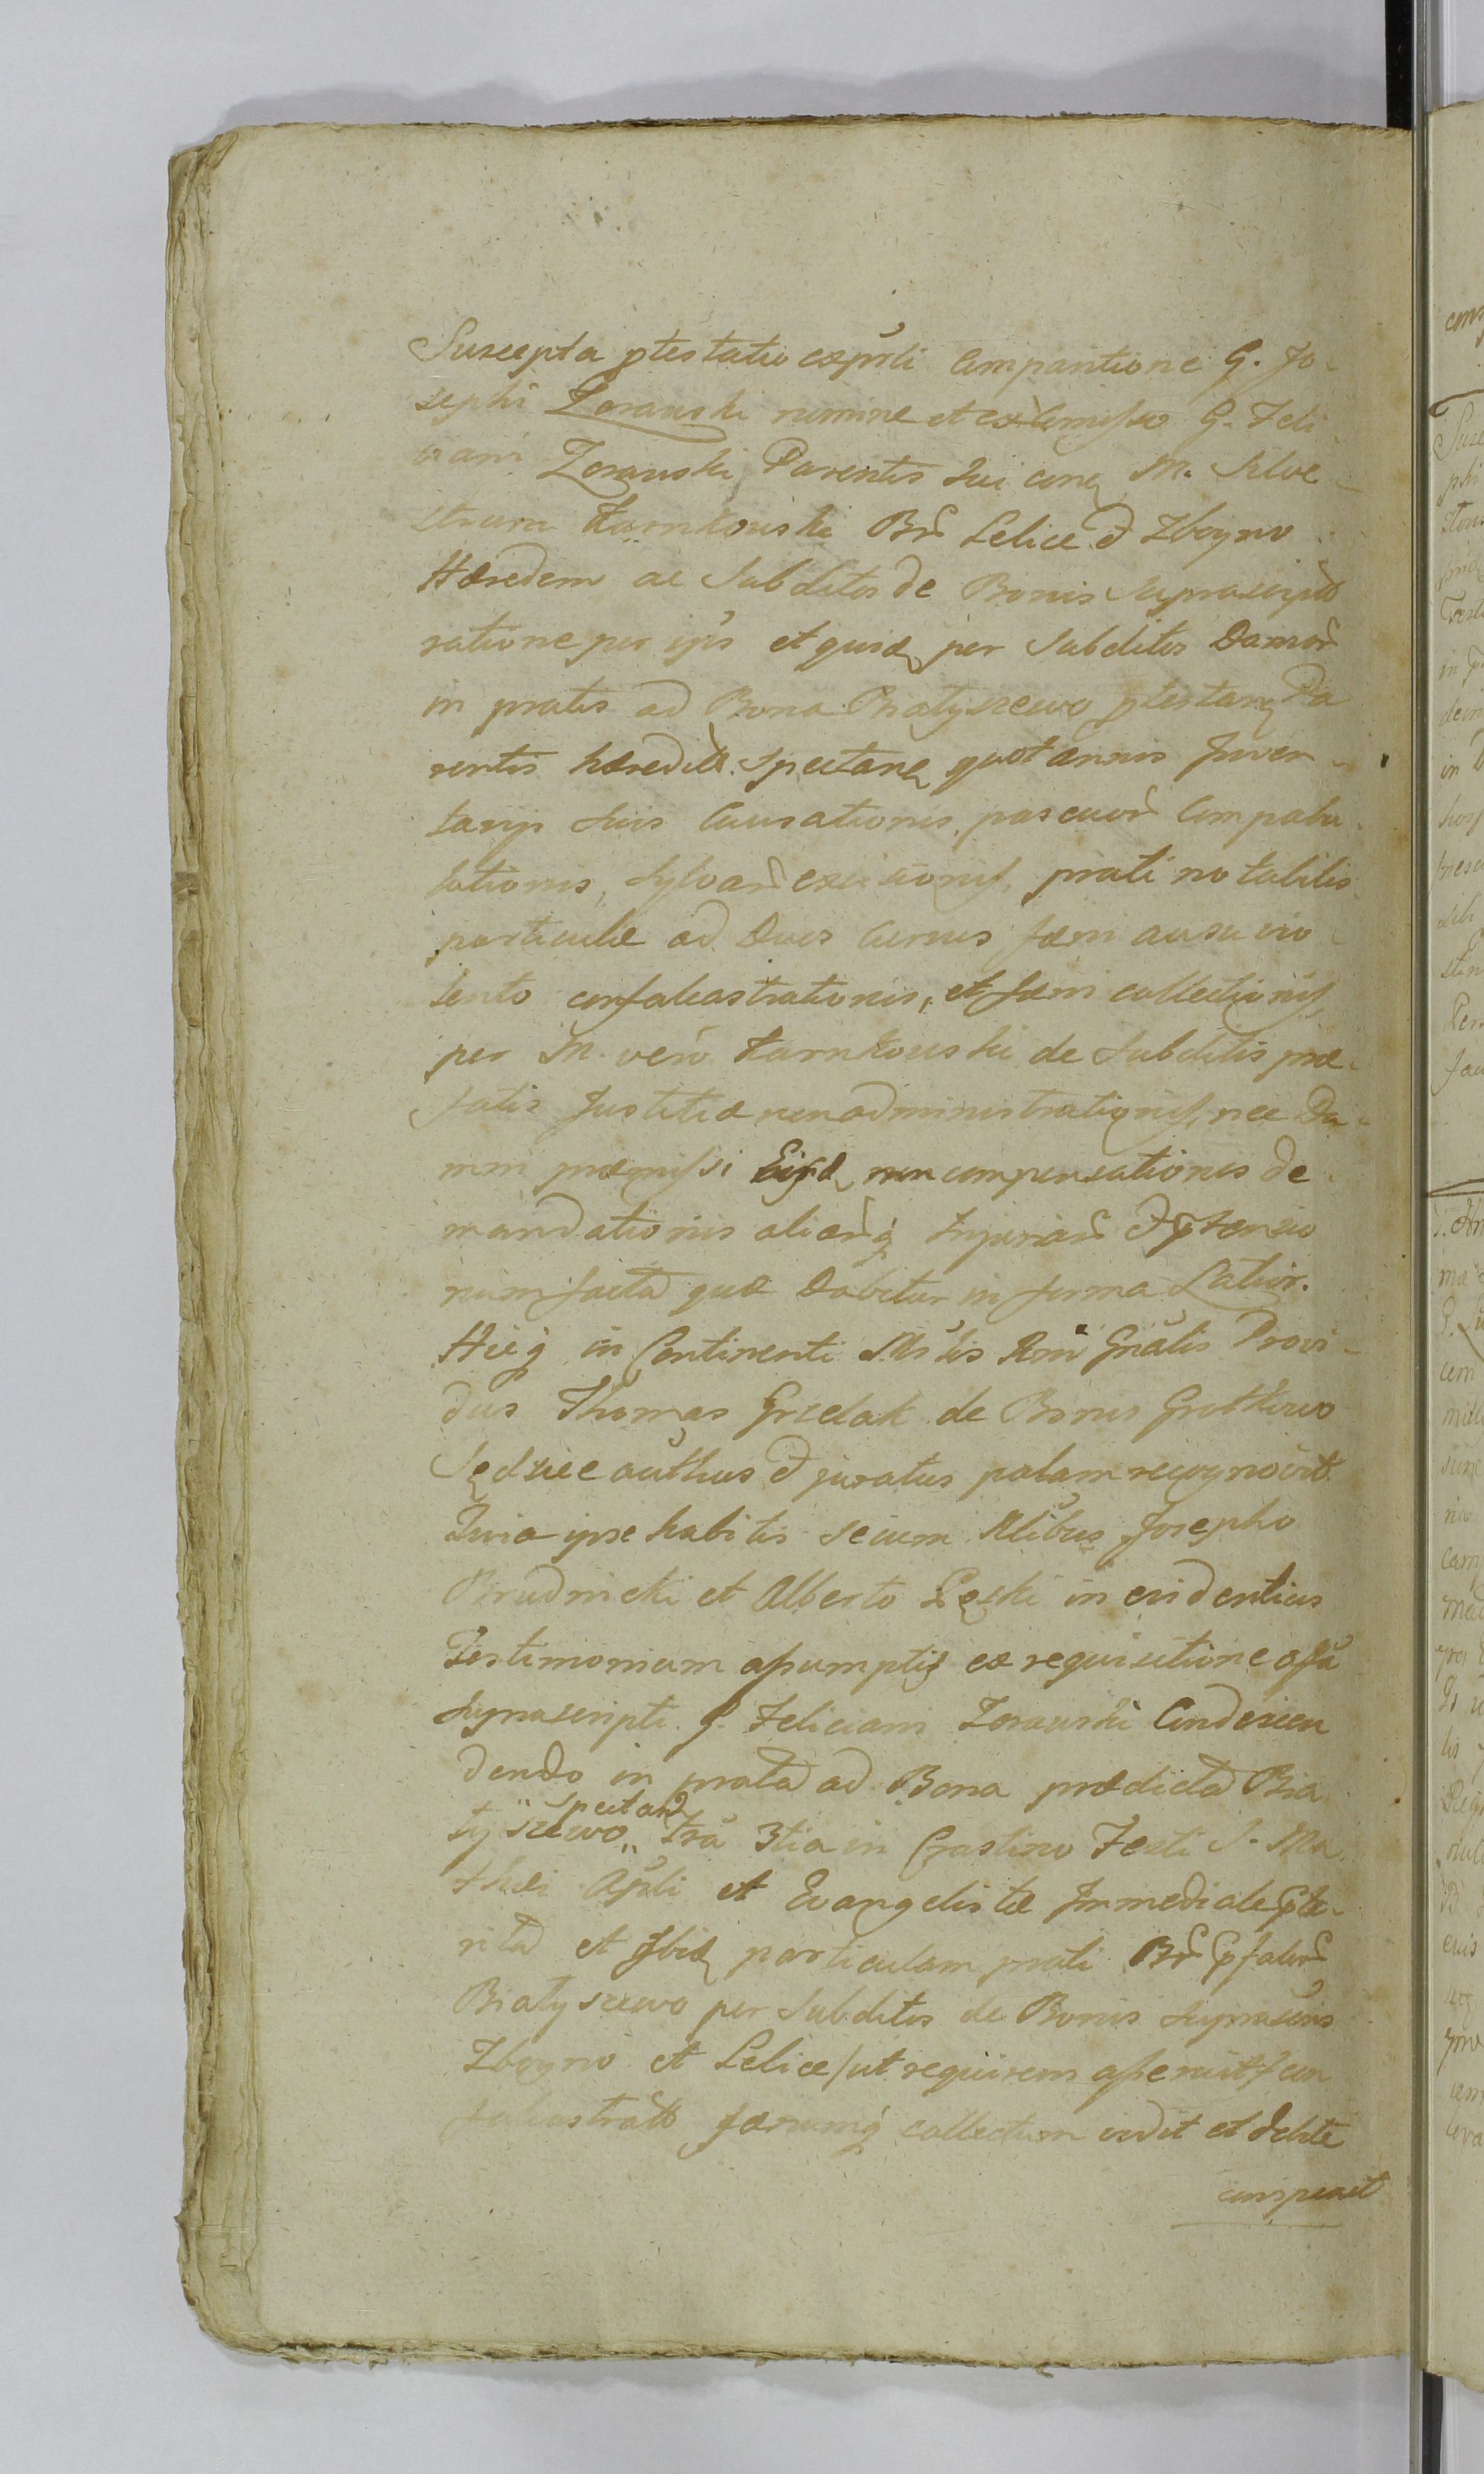 Suscepta ptestatio exprti Comparitione G. Jo-
sephi Zorawski nomine et ex Comisso G. Feli
ciani Zorawski Parentis sui cone M. Silve-
strum Karnkowski Br Lelice & Zboyno
Hæredem ac Subditos de Bonis suprascript
ratione per ips et quidē per Subditos Damor
in pratis ad Bona Białyszewo ptestane Pa
rentis hæredit. Spectane quotannis Juven-
tarys suis Causationis, pascuor Compabu-
lationis, Sylvar excisionis, prati notabilis
particulæ ad Duos Currus fæni ausu vio-
lento confalcastrationis, et fæni collectionis,
per M. vero Karnkowski de Subditis præ-
fatis Justitiæ non administrationis, nec Da-
mni præmissi Eide non compensationis de-
mandationis aliarq Injuriar & ptensio
num facta quæ Dabitur in forma Latior.
Hicq in Continenti Mslis Rni Gnalis Provi-
dus Thomas Grzelak de Bonis Gutkowo
Sędzice authus & juratus palam recognovit
Quia ipse habitis secum Nlibus Josepho
Brudnicki et Alberto Łęski in evidentius
Testimonium assumptis ex requisitione offa
suprascripti G. Feliciani Zorawski Condescen
dendo in prata ad Bona prædicta Bia
łyszewo spectan fra 3tia in Crastino Festi S. Ma-
thæi Apli et Evangelistæ Immediate pte-
rita et Ibide particulam prati Br pfator
Białyszewo per Subditos de Bonis suprascris
Zboyno et Lelice /ut requirens asseruit/ con
falcastratt fænumq collectum vidit et debite
conspexit